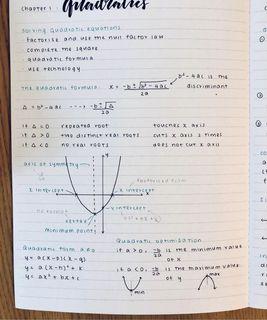 Chapter 1 Quadratics
Solving Quadratic equations
factorise and use the null factor law
complete the square
quadratic formula
use technology
b² - 4ac is the
the quadratic formula x = -b ± √b² - 4ac
2a
discriminant
Δ = b² - 4ac ---> -b ± √Δ
2a
if Δ = 0 repeated root touches x axis
if Δ > 0 two distinct real roots cuts x axis 2 times
if Δ < 0 no real roots does not cut x axis
axis of symmetry
y
factorised form
x intercept x intercept
x
y intercept
vertex
minimum point
Quadratic form a≠0 Quadratic optimisation
y = a(x-p)(x-q) if a > 0, -b/2a is the minimum value
of x
y = a(x-h)² + k if a < 0, -b/2a is the maximum value
y = ax² + bx + c of y
min max